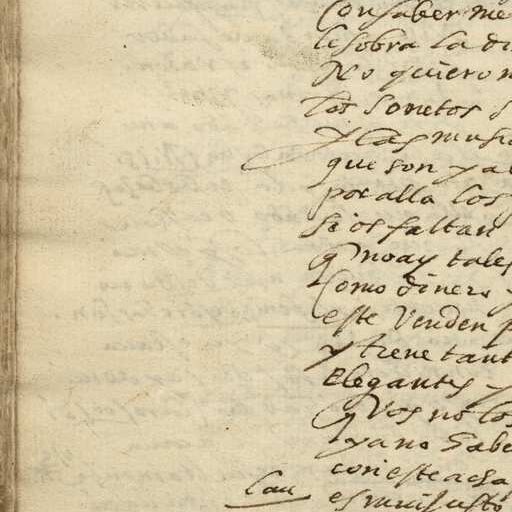 Con saber me
le sobra la di
No quiero
los sonetos
y las musi
que son ya
por alla los
si os faltan
q no ay tales
Como dinero y
este Venden p
y tiene tant
elegantes y
q Vos no los
ya no sabe
con este acha
Cau
es mui justo